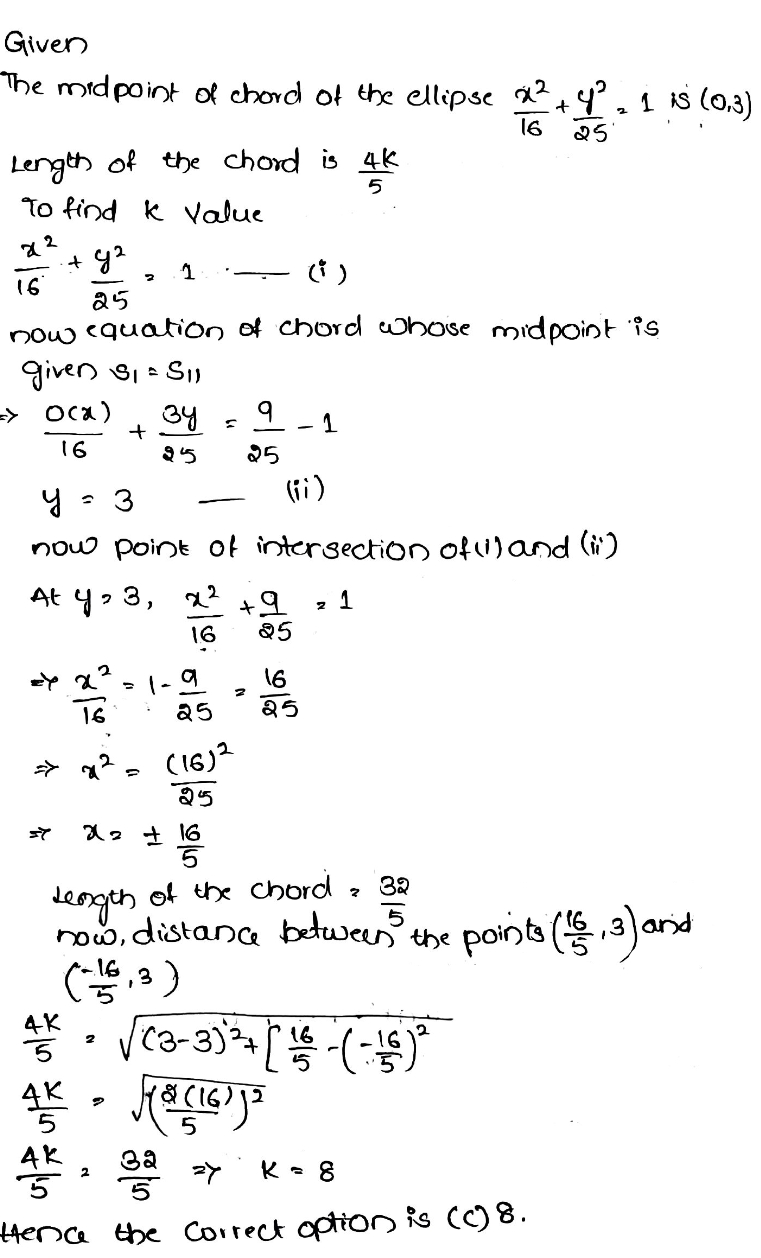 Given
The midpoint of chord of the ellipse x²/16 + y²/25 = 1 is (0,3)
Length of the chord is 4K/5
To find K value
x²/16 + y²/25 = 1 — (i)
now equation of chord whose midpoint is
given S₁ = S₁₁
⇒ 0(x)/16 + 3y/25 = 9/25 - 1
y = 3 — (ii)
now point of intersection of (i) and (ii)
At y = 3, x²/16 + 9/25 = 1
⇒ x²/16 = 1 - 9/25 = 16/25
⇒ x² = (16)²/25
⇒ x = ± 16/5
Length of the chord = 32/5
now, distance between the points (16/5, 3) and
(-16/5, 3)
4K/5 = √((3-3)² + [16/5 - (-16/5)²
4K/5 = √((2(16)/5)²
4K/5 = 32/5 ⇒ K = 8
Hence the correct option is (C) 8.